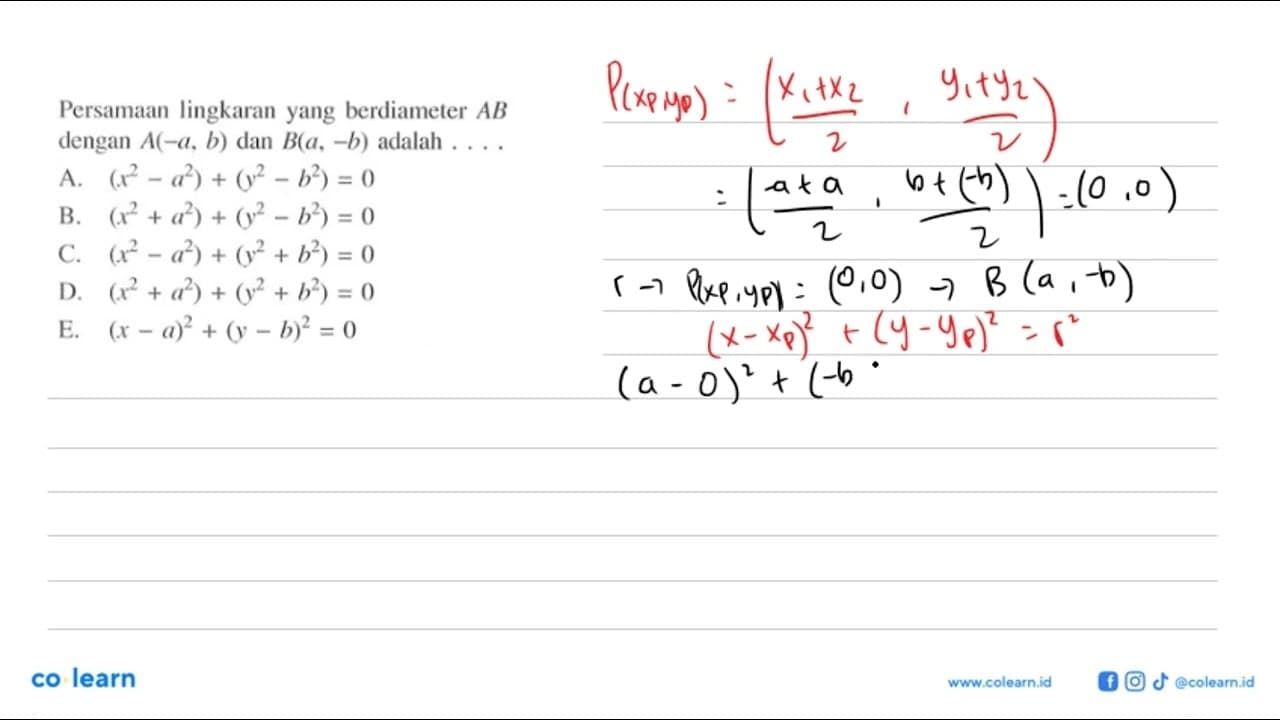 Persamaan lingkaran yang berdiameter AB
dengan A(–a, b) dan B(a, –b) adalah . . . .
A. (x² – a²) + (y² – b²) = 0
B. (x² + a²) + (y² – b²) = 0
C. (x² – a²) + (y² + b²) = 0
D. (x² + a²) + (y² + b²) = 0
E. (x – a)² + (y – b)² = 0
P(xp,yp) = (x₁+x₂/2 , y₁+y₂/2)
= (-a+a/2 , b+(-b)/2) = (0,0)
r → P(xp,yp) = (0,0) → B(a,-b)
(x-xp)² + (y-yp)² = r²
(a-0)² + (-b
co learn
www.colearn.id
@colearn.id